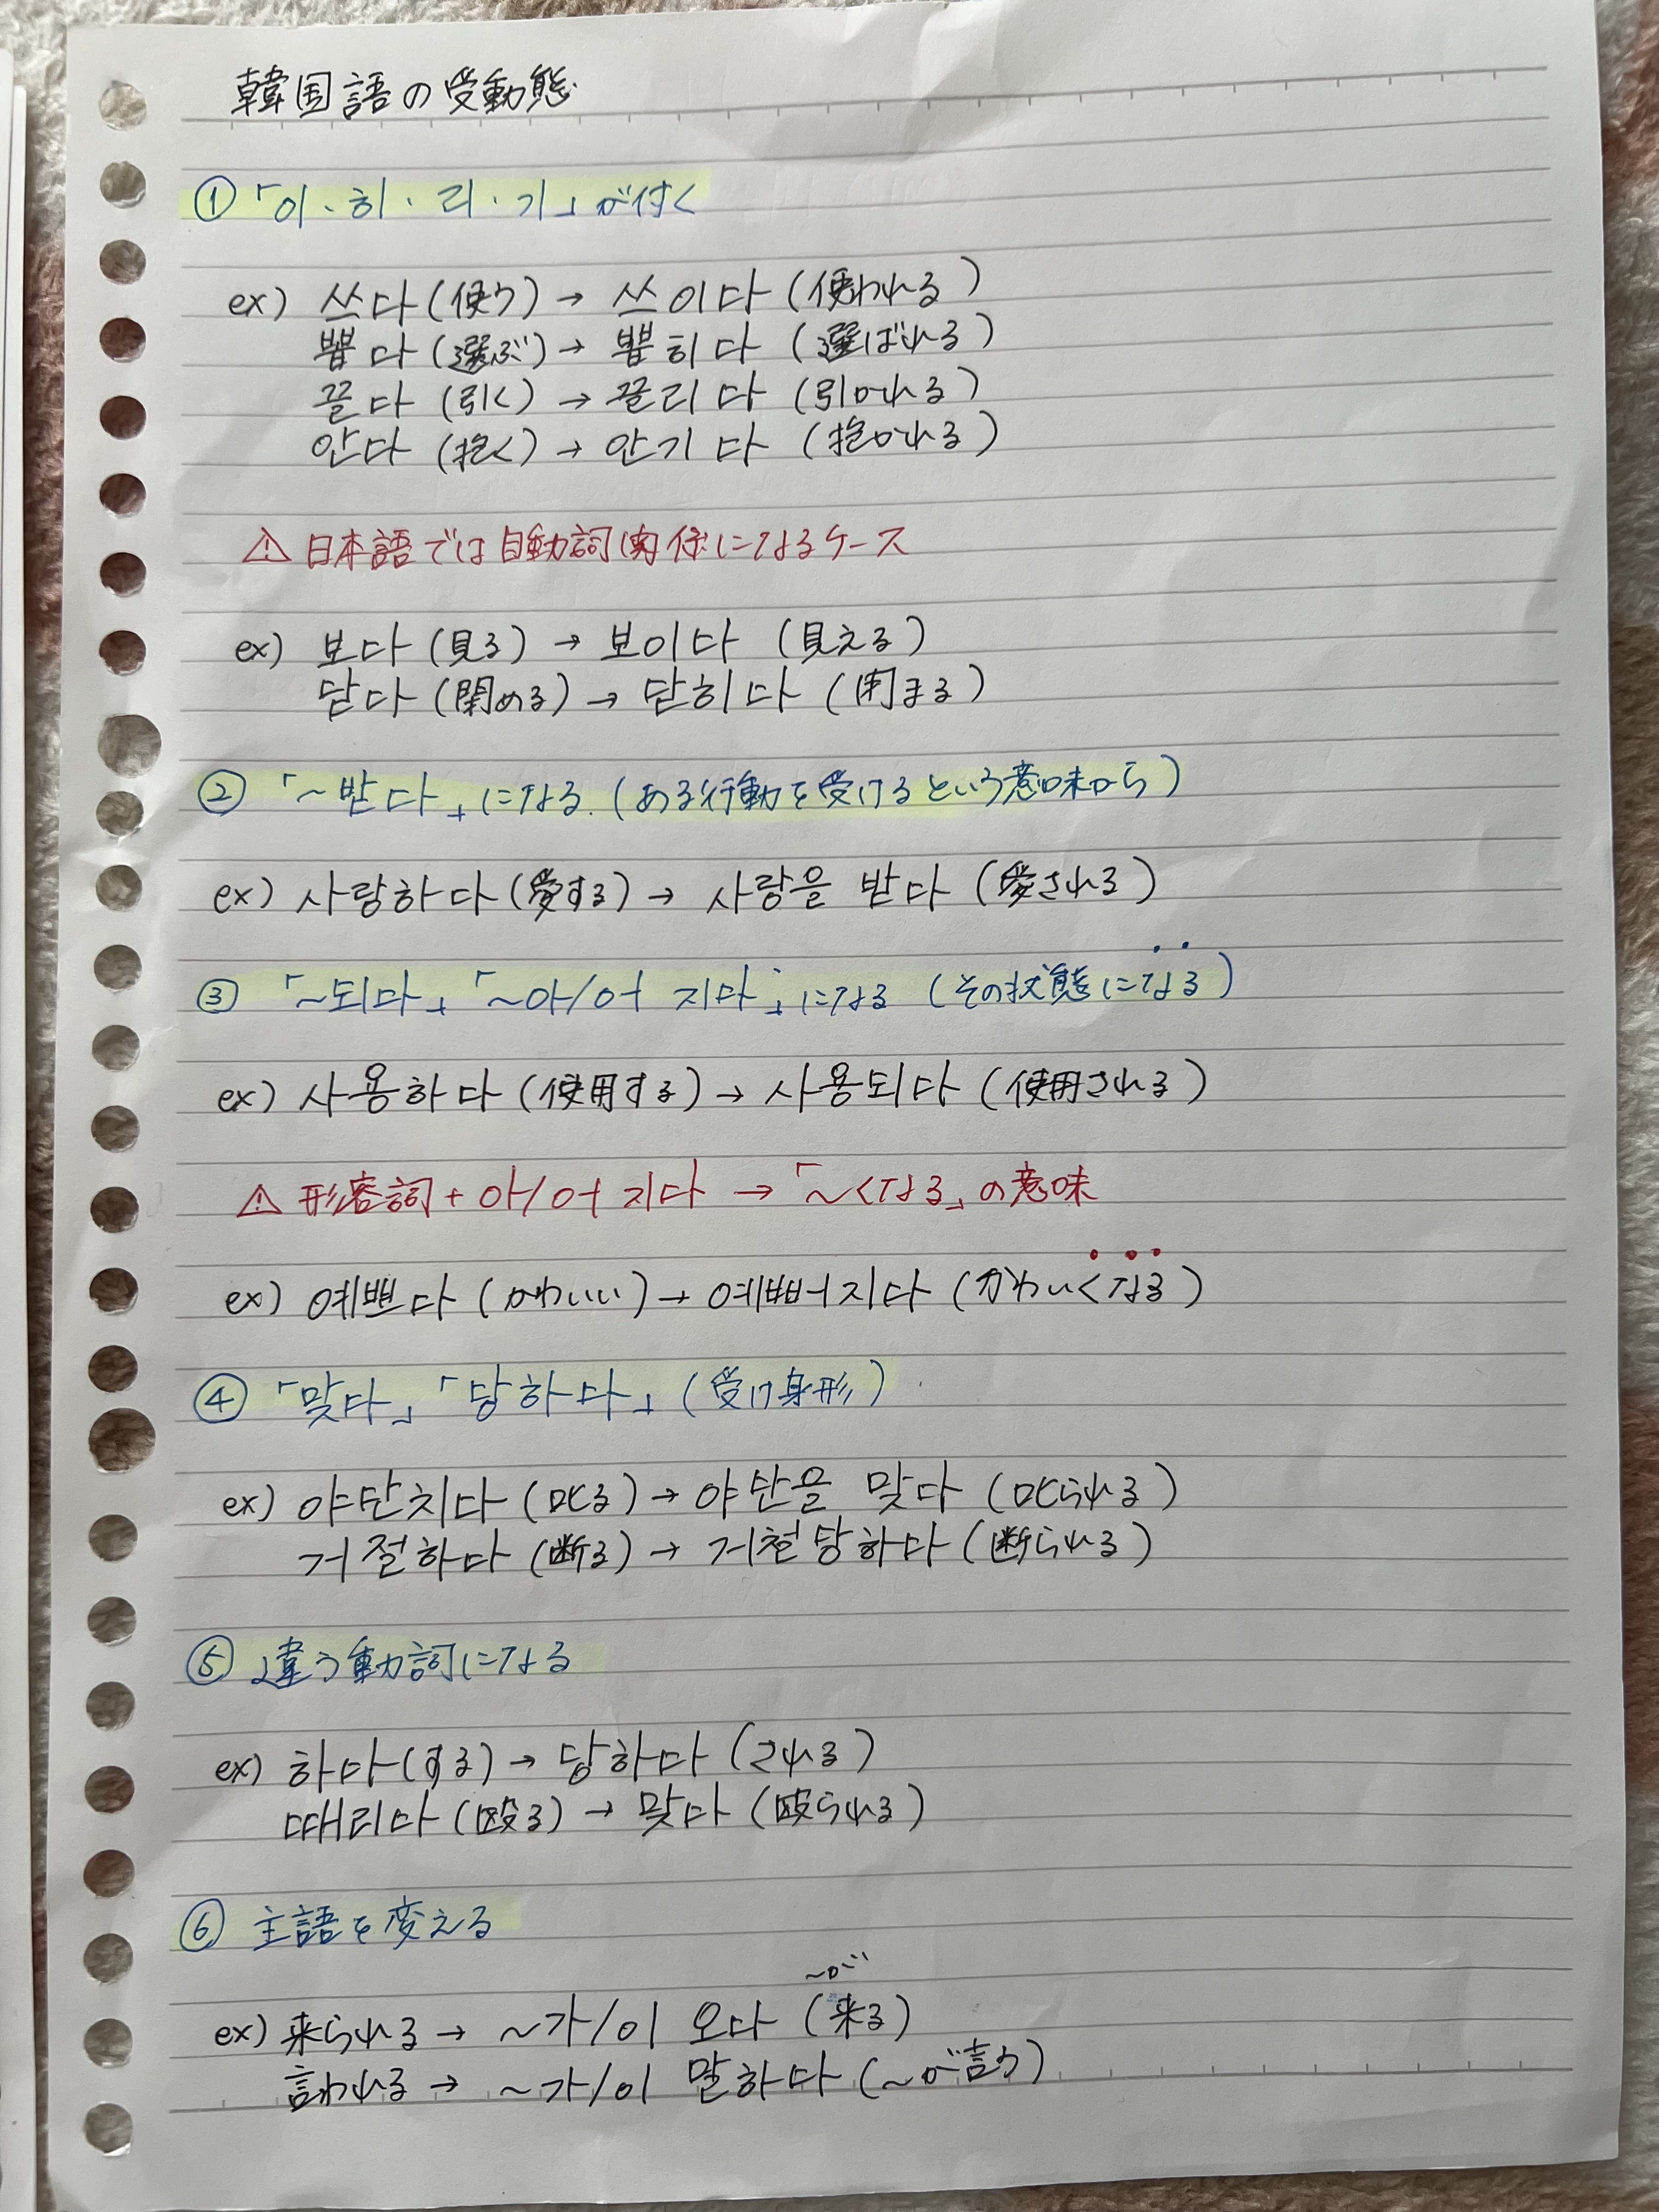 韓国語の受動態
①「이・히・리・기」が付く
ex) 쓰다(使う) → 쓰이다 (使われる)
뽑다 (選ぶ) → 뽑히다 (選ばれる)
끌다 (引く) → 끌리다 (引かれる)
안다 (抱く) → 안기다 (抱かれる)
⚠ 日本語では自動詞関係になるケース
ex) 보다 (見る) → 보이다 (見える)
닫다 (閉める) → 닫히다 (閉まる)
②「~받다」になる.(ある行動を受けるという意味から)
ex) 사랑하다(愛する) → 사랑을 받다 (愛される)
③「~되다」「~아/어 지다」になる (その状態になる)
ex) 사용하다 (使用する) → 사용되다 (使用される)
⚠ 形容詞 + 아/어 지다 → 「~くなる」の意味
ex) 예쁘다 (かわいい) → 예뻐지다 (かわいくなる)
④「맞다」「당하다」(受け身形)
ex) 야단치다 (叱る) → 야단을 맞다 (叱られる)
거절하다 (断る) → 거철당하다 (断られる)
⑤ 違う動詞になる
ex) 하다 (する) → 당하다 (される)
때리다 (殴る) → 맞다 (殴られる)
⑥ 主語を変える
ex) 来られる → ~가/이 오다 (~が来る)
言われる → ~가/이 말하다 (~が言う)